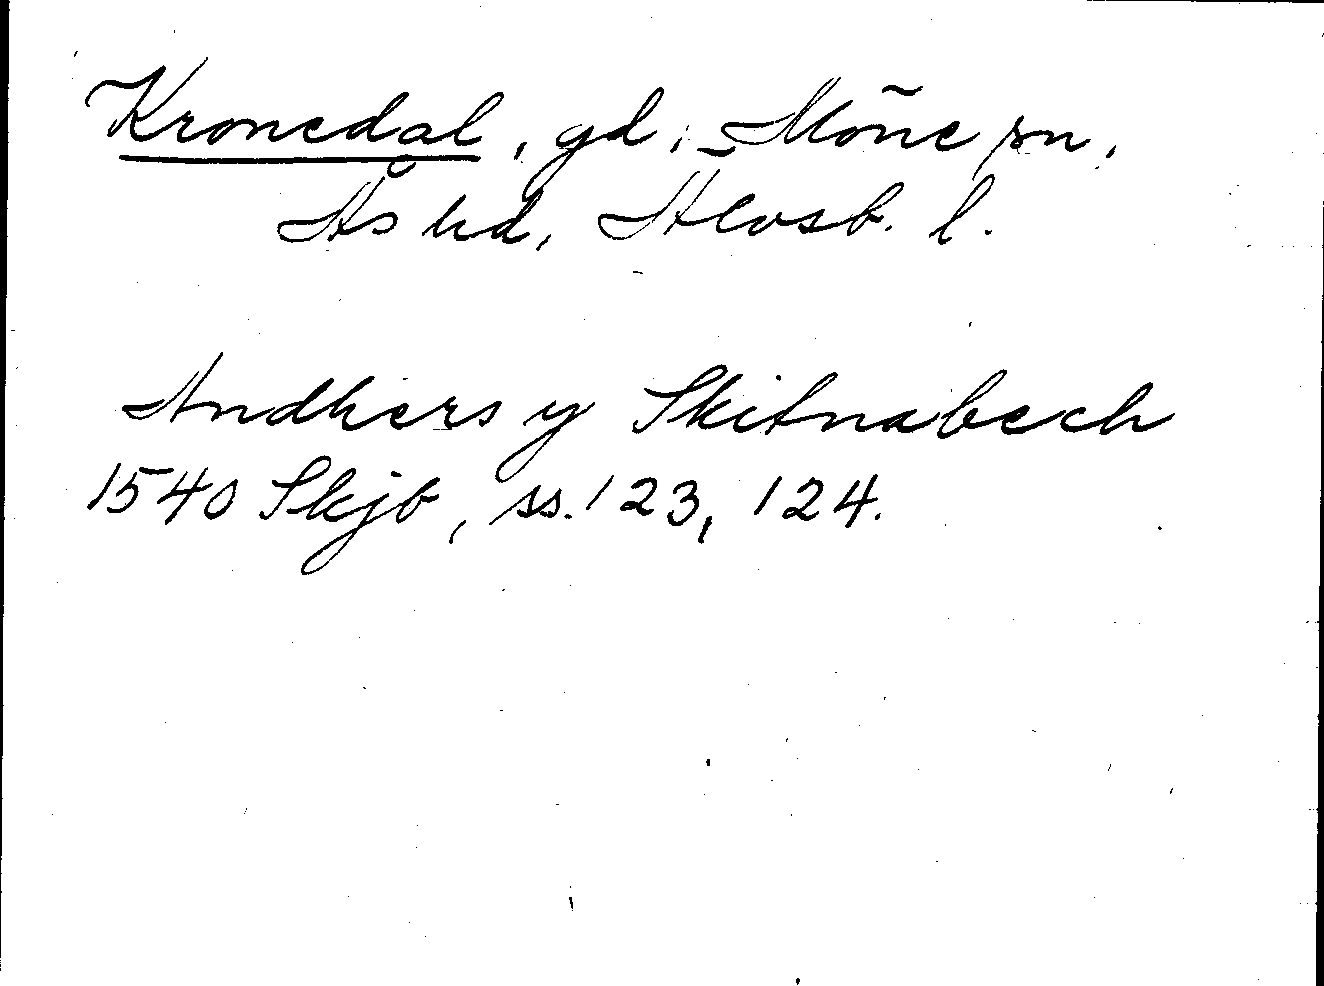 Kronedal, gd, Möne sn,
Ås hd, Älvsb. l.
Andhers y Skitnabech
1540 Skjb, ss. 123, 124.